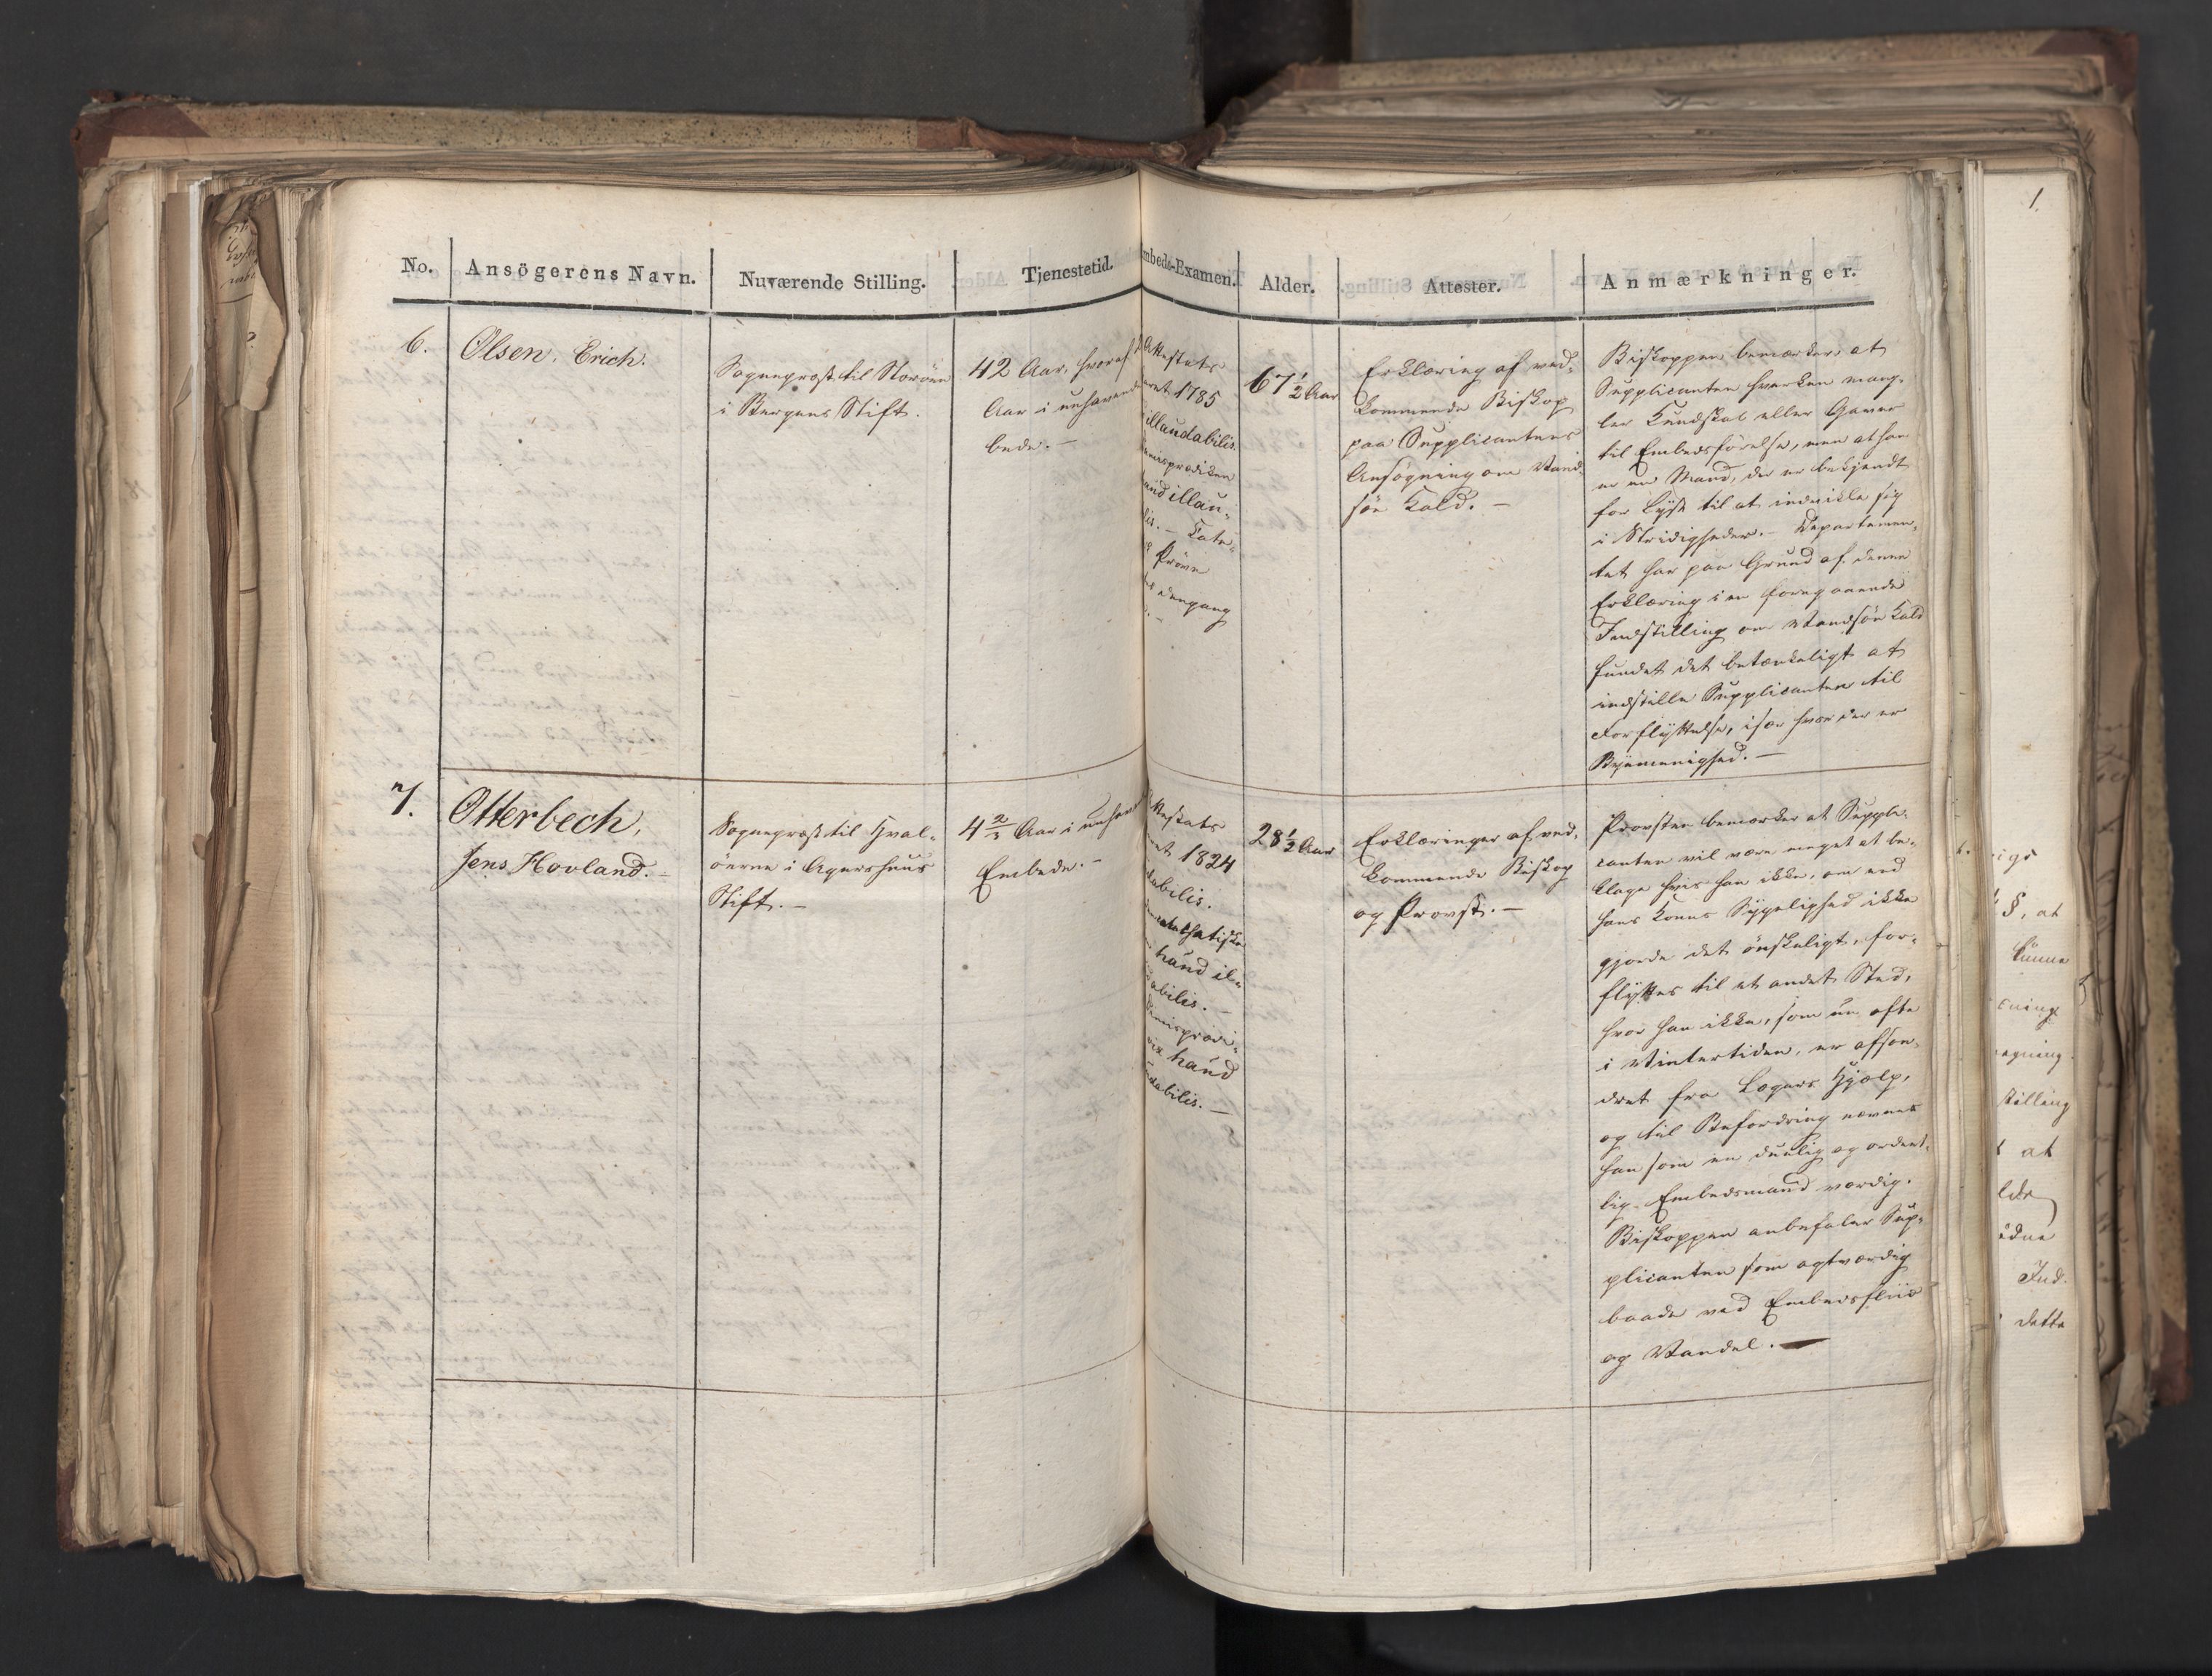 No.
Ansögerens Navn.
Nuværende Stilling.
Tjenestetid.
mbeds-Examen.
Alder.
Attester.
Anmærkninger.
6.
Olsen, Erich.
Sognepræst til Storöen
i Bergens Stift.
42 Aar, hvoraf
Aar i nuhavende
bede. —
Attestats
1785
illaudabilis.
misprædiken
aud illau-
lis. — Kate-
Pröve
engang
67 1/2 Aar
Erklæring af ved-
kommende Biskop
paa Supplicantens
Ansøgning om Vand-
söe Kald. —
Biskoppen bemærker, at
Supplicanten hverken mang-
ler Kundskab eller Gaver
til Embedsförelse, men at han
er en Mand, der er bekjendt
for Lyst til at indvikle sig
i Stridigheder. — Departemen-
tet har paa Grund af denne
Erklæring i en foregaaende
Indstilling om Vandsöe Kald
fundet det betænkeligt at
indstille Supplicanten til
Forflyttelse, især hvor der er
Byemenighed. —
7.
Otterbech,
Jens Hovland. —
Sognepræst til Hval-
öerne i Agershuus
Stift. —
4 2/3 Aar i nuhav
Embede. —
Attestats
1824
dabilis.
haud illau
abilis. —
Demisprædi-
haud
udabilis. —
28 1/2 Aar
Erklæringer af ved-
kommende Biskop
og Provst. —
Provsten bemærker at Suppli-
canten vil være meget at be-
klage hvis han ikke, om end
hans Kones Sygelighed ikke
gjorde det önskeligt, for-
flyttes til et andet Sted,
hvor han ikke, som nu ofte
i Vintertiden, er afson-
dret fra Lægers Hjælp,
og til Befordring nævnes
han som en duelig og ordent-
lig Embedsmand værdig.
Biskoppen anbefaler Sup-
plicanten som agtværdig
baade ved Embedsfliid
og Vandel. —
1.
§, at
kunne
tilling
at
Ind-
dette